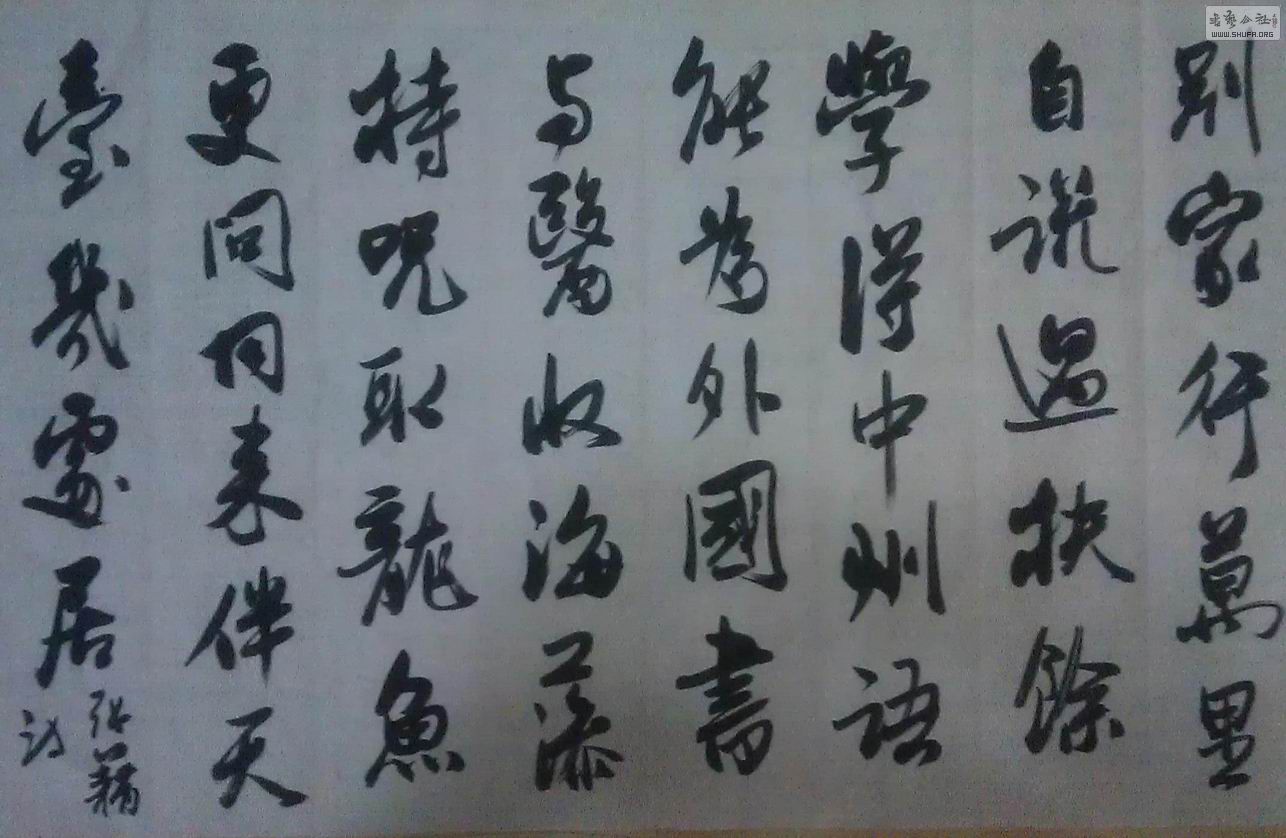 別家行萬里
自說過扶餘
學得中州語
能為外國書
与醫收海藻
持呪取龍魚
更問同來伴天
臺幾處居
張籍
詩
書藝公社
WWW.SHUFA.ORG